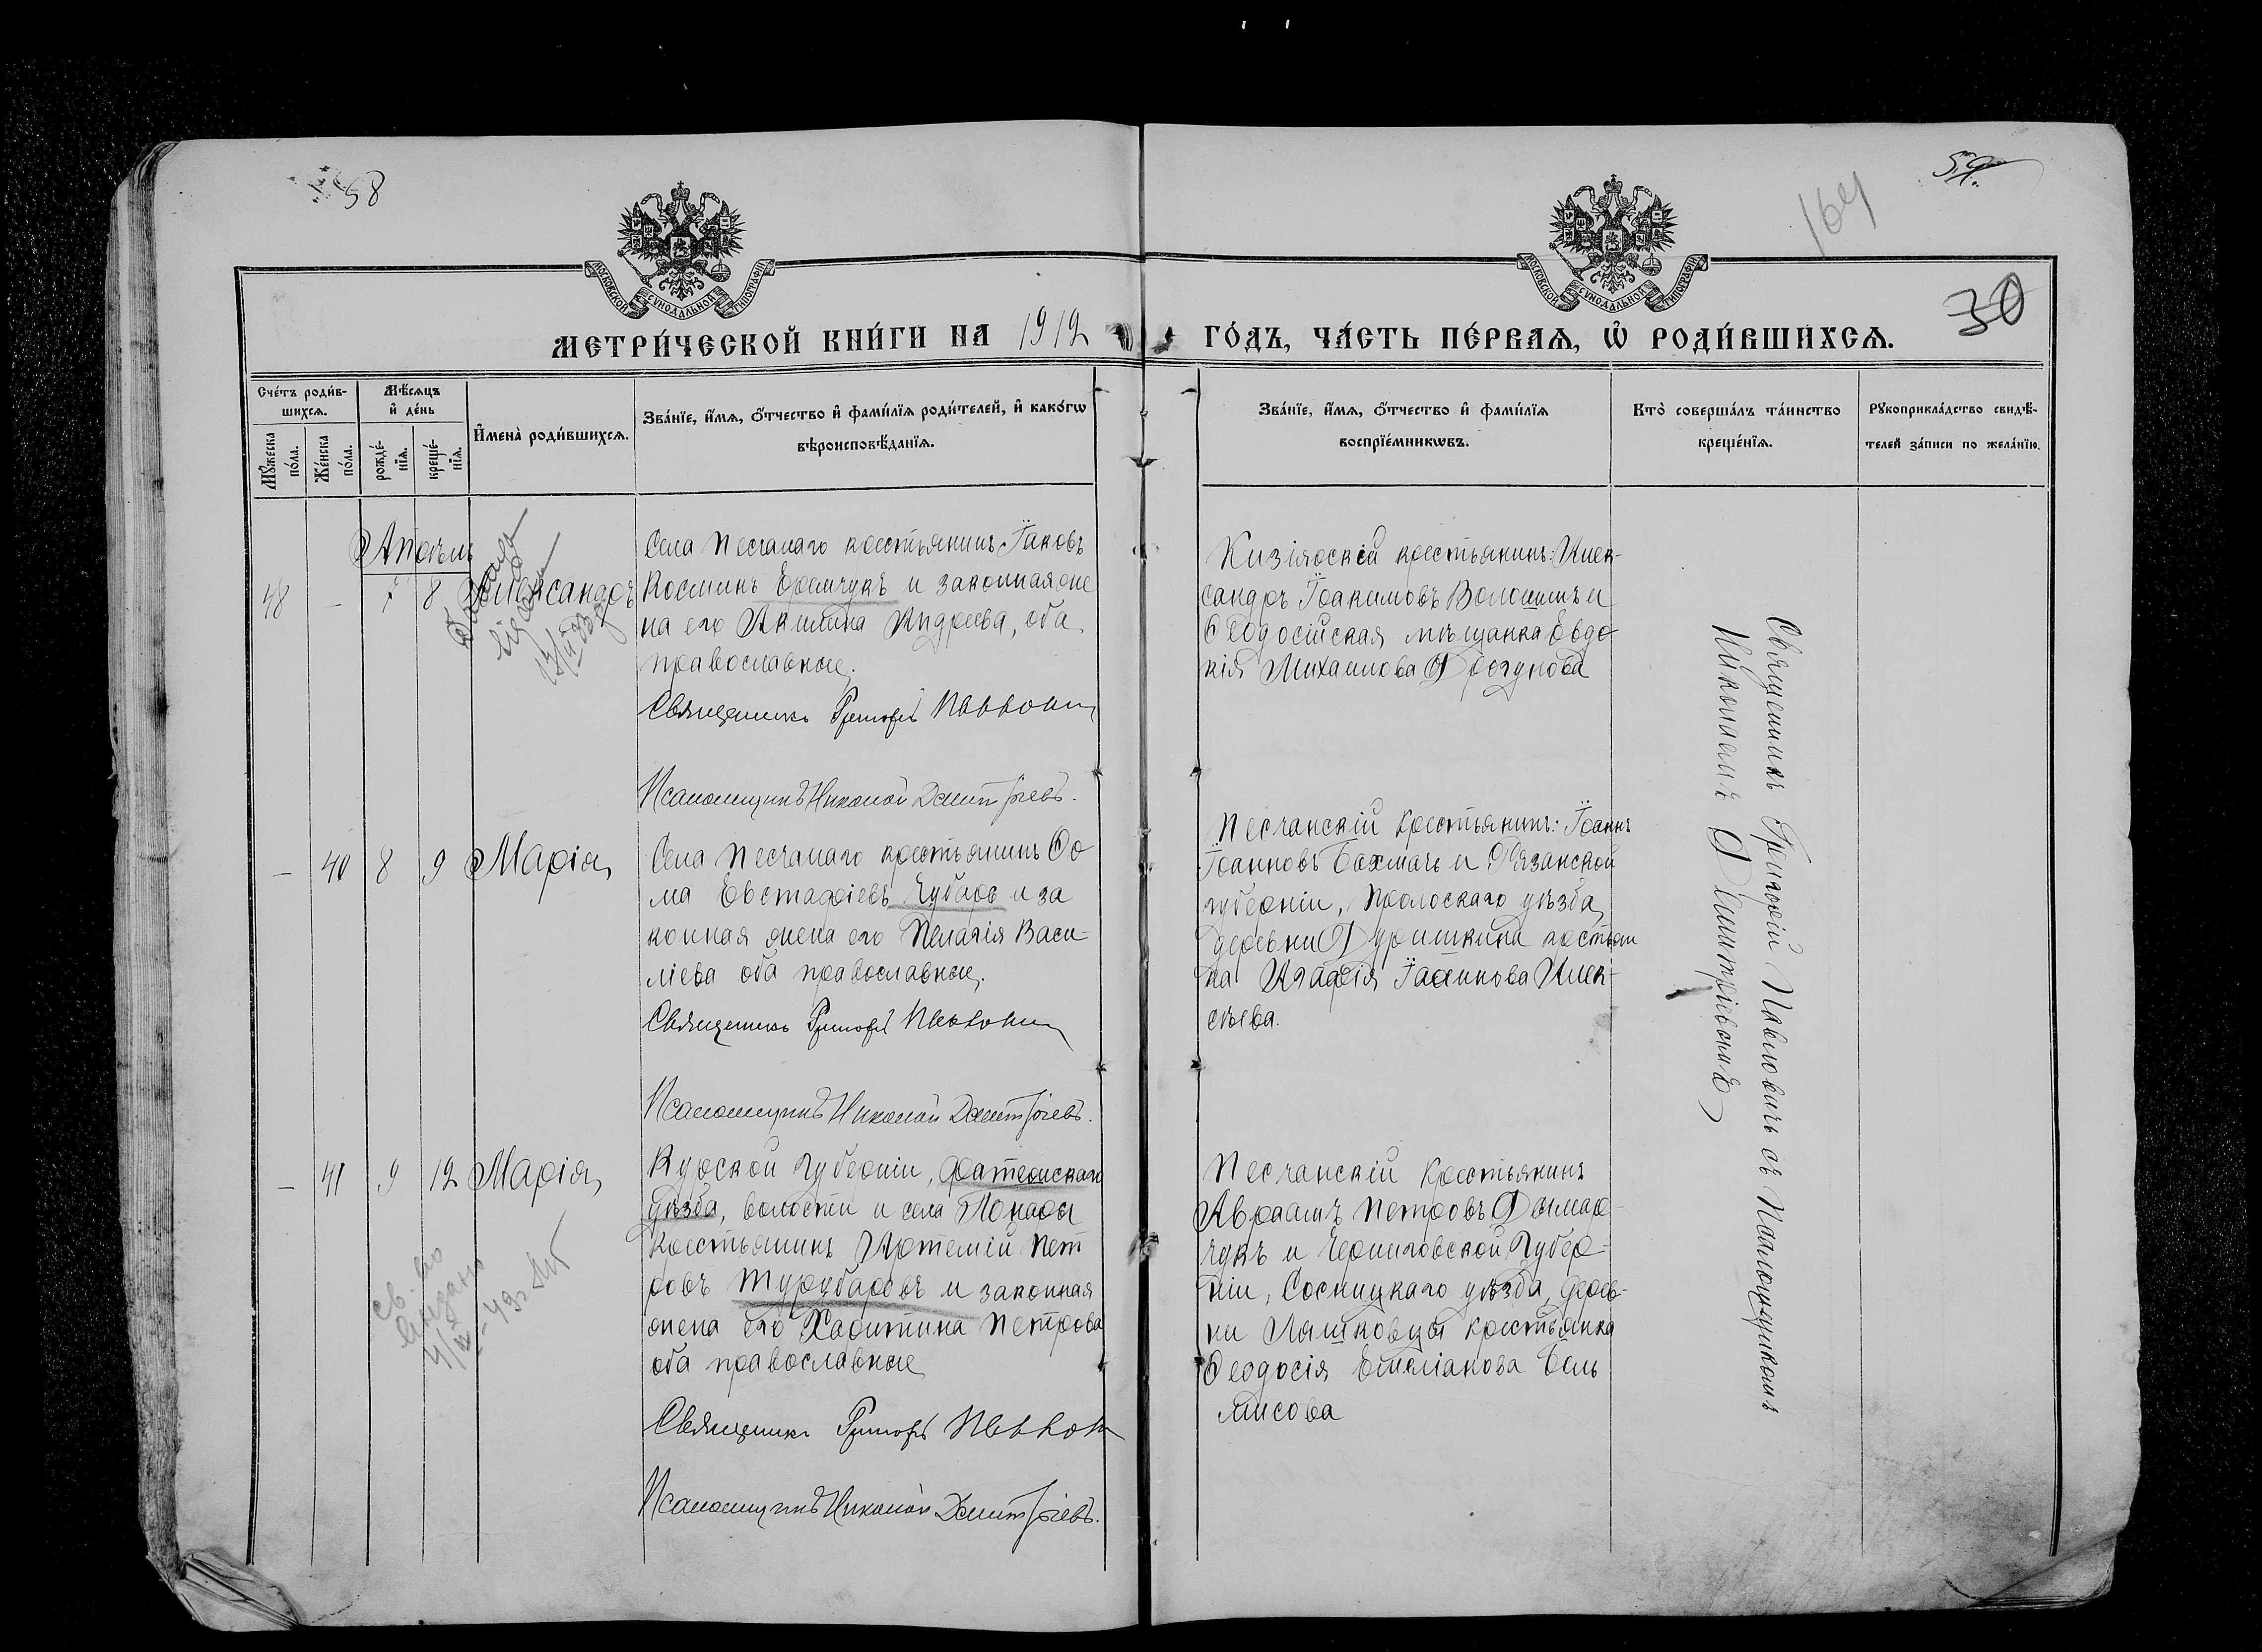 58
59.
164
30
МОСКОВСКОЙ СѴНОДАЛЬНОЙ ТИПОГРАФІИ
МОСКОВСКОЙ СѴНОДАЛЬНОЙ ТИПОГРАФІИ
МЕТРИ́ЧЕСКОЙ КНИ́ГИ НА 1912
ГО́ДЪ, ЧА́СТЬ ПЕ́РВАѦ, Ѡ҆ РОДИ́ВШИХСѦ.
Сче́тъ роди́в-
шихсѧ.
Мꙋ́жеска
по́ла.
Же́нска
по́ла.
Мѣ́сѧцъ
и҆ де́нь
рожде́-
нїѧ.
креще́-
нїѧ.
И҆мена̀ роди́вшихсѧ.
Зва́нїе, и҆́мѧ, ѻ҆́тчество и҆ фами́лїѧ роди́телей, и҆ како́гѡ
вѣроисповѣ́данїѧ.
Зва́нїе, и҆́мѧ, ѻ҆́тчество и҆ фами́лїѧ
воспрїе́мникѡвъ.
Кто̀ соверша́лъ та́инство
креще́нїѧ.
Рꙋкоприкла́дство свидѣ́-
телей за́писи по жела́нїю.
Апрѣль
48 - 7 8 Александръ
Села Песчанаго крестьянинъ Іаковъ
Косминъ Еремчукъ и законная же
на его Акилина Андреева, оба
православные.
Священникъ Григорій Павлович
Псаломщикъ Николай Дмитріевъ.
Кизіярскій крестьянинъ: Алек-
сандръ Іоакимовъ Волошинъ и
Ѳеодосійская мѣщанка Евдо
кія Михаилова Дрегунова
- 40 8 9 Марія
Села Песчанаго крестьянинъ Ѳо
ма Евстафіевъ Чубарь и за
конная жена его Пелагія Васи-
ліева оба православные.
Священникъ Григорій Павлович
Псаломщикъ Николай Дмитріевъ.
Песчанскій крестьянинъ: Іоаннъ
Іоанновъ Бахмачъ и Рязанской
губерніи, Пронскаго уѣзда,
деревни Дуришкина крестьян
ка Агафія Іоаннова Алек-
сѣева.
- 41 9 12 Марія
Курской губерніи, Фатежскаго
уѣзда, волости и села Поныры
крестьянинъ Артемій Пет
ровъ Турубаровъ и законная
жена его Харитина Петрова
оба православные
Священникъ Григорій Павлович
Псаломщикъ Николай Дмитріевъ.
Песчанскій крестьянинъ
Авраамъ Петровъ Дымар-
чукъ и Черниговской Губер-
ніи, Сосницкаго уѣзда, дерев-
ни Ляшковцы крестьянка
Ѳеодосія Емеліанова Бель
мисова
Священникъ Григорій Павловичъ съ Псаломщикомъ
Николаемъ Дмитріевымъ